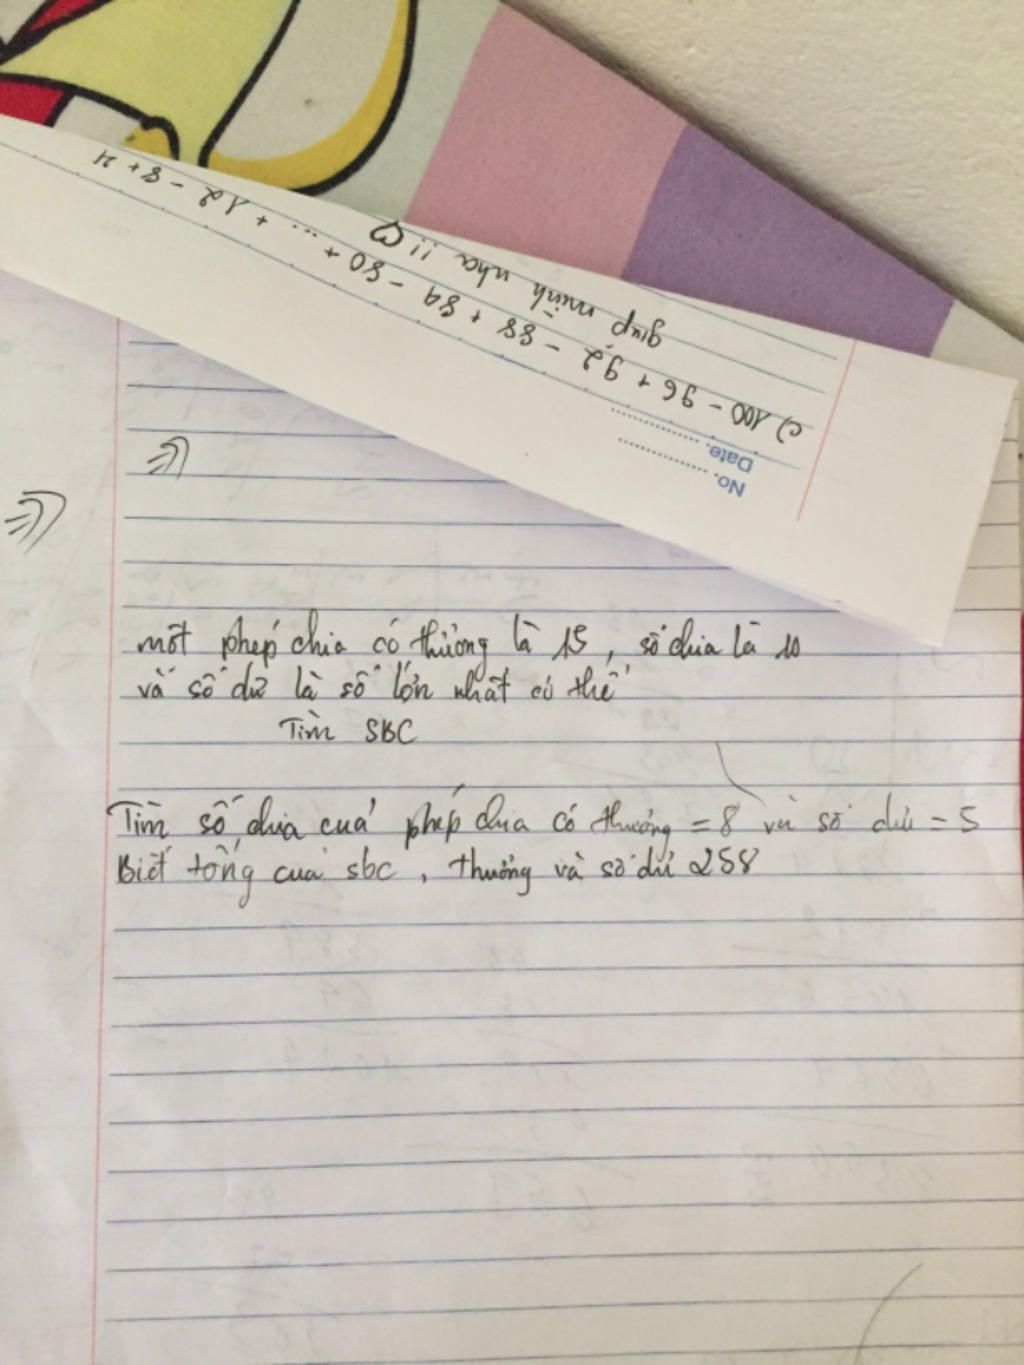 No. ..................
Date. ..................
c) 100 - 96 + 92 - 88 + 84 - 80 + ... + 12 - 8 + 4
giúp mình nha !! ♡
một phép chia có thương là 15, số chia là 10
và số dư là số lớn nhất có thể
Tìm SBC
Tìm số chia của phép chia có thương = 8 và số dư = 5
Biết tổng của sbc, thương và số dư 258